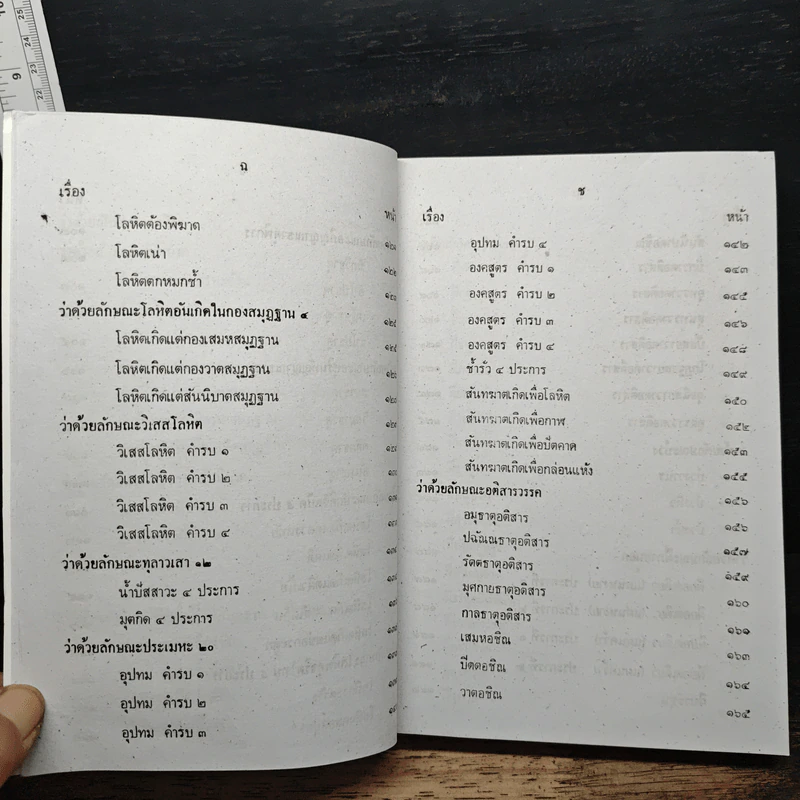 ฉ
เรื่อง
หน้า
โลหิตต้องพิฆาต
โลหิตเน่า
โลหิตตกหมกช้ำ
ว่าด้วยลักษณะโลหิตอันเกิดในกองสมุฏฐาน ๔
โลหิตเกิดแต่กองเสมหสมุฏฐาน
โลหิตเกิดแต่กองวาตสมุฏฐาน
โลหิตเกิดแต่สันนิบาตสมุฏฐาน
ว่าด้วยลักษณะวิเสสโลหิต
วิเสสโลหิต คำรบ ๑
วิเสสโลหิต คำรบ ๒
วิเสสโลหิต คำรบ ๓
วิเสสโลหิต คำรบ ๔
ว่าด้วยลักษณะทุลาวเสา ๑๒
น้ำปัสสาวะ ๔ ประการ
มุตกิด ๔ ประการ
ว่าด้วยลักษณะประเมหะ ๒๐
อุปทม คำรบ ๑
อุปทม คำรบ ๒
อุปทม คำรบ ๓
ช
เรื่อง หน้า
อุปทม คำรบ ๔ ๑๔๒
องคสูตร คำรบ ๑ ๑๔๓
องคสูตร คำรบ ๒ ๑๔๕
องคสูตร คำรบ ๓ ๑๔๖
องคสูตร คำรบ ๔ ๑๔๘
ช้ำรั่ว ๔ ประการ ๑๔๙
สันทฆาตเกิดเพื่อโลหิต ๑๕๐
สันทฆาตเกิดเพื่อกาฬ ๑๕๒
สันทฆาตเกิดเพื่อปัตคาด ๑๕๓
สันทฆาตเกิดเพื่อกล่อนแห้ง ๑๕๕
ว่าด้วยลักษณะอติสารวรรค ๑๕๖
อมุธาตุอติสาร ๑๕๖
ปฉัณณธาตุอติสาร ๑๕๗
รัตตธาตุอติสาร ๑๕๙
มุศกายธาตุอติสาร ๑๖๐
กาลธาตุอติสาร ๑๖๑
เสมหอชิณ ๑๖๓
ปิตตอชิณ ๑๖๔
วาตอชิณ ๑๖๕